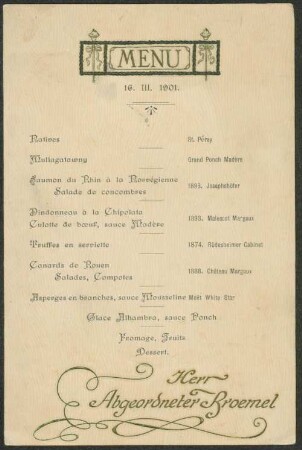 MENU
16. III. 1901.
Natives St. Péray
Mullagatawny Grand Ponch Madère
Saumon du Rhin à la Norvégienne 1893. Josephshöfer
Salade de concombres
Dindonneau à la Chipolata
Culotte de bœuf, sauce Madère 1893. Malescot Margaux
Truffes en serviette 1874. Rüdesheimer Cabinet
Canards de Rouen 1888. Château Margaux
Salades, Compotes
Asperges en branches, sauce Mousseline Moët White Star
Glace Alhambra, sauce Ponch
Fromage, Fruits
Dessert.
Herr
Abgeordneter Broemel